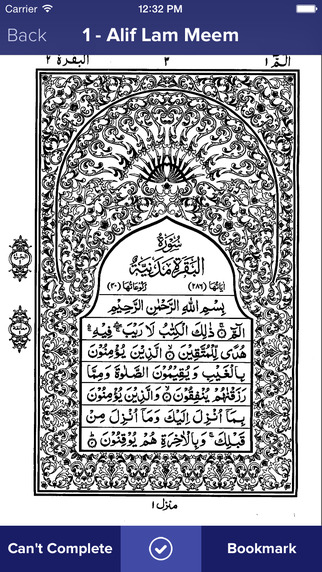 Carrier 12:32 PM
Back 1 - Alif Lam Meem
الٓمّٓ ١ ٣ البقرة ٢
سُوْرَةُ
الْبَقَرَةِ مَدَنِيَّةٌ
اٰيَاتُهَا (٢٨٦) رُكُوْعَاتُهَا (٤٠)
بِسْمِ اللّٰهِ الرَّحْمٰنِ الرَّحِيْمِ
الٓمّٓ ۚ ذٰلِكَ الْكِتٰبُ لَا رَيْبَ ۛ فِيْهِ ۛ
هُدًى لِّلْمُتَّقِيْنَ ۙ الَّذِيْنَ يُؤْمِنُوْنَ
بِالْغَيْبِ وَيُقِيْمُوْنَ الصَّلٰوةَ وَمِمَّا
رَزَقْنٰهُمْ يُنْفِقُوْنَ ۙ وَالَّذِيْنَ يُؤْمِنُوْنَ
بِمَآ اُنْزِلَ اِلَيْكَ وَمَآ اُنْزِلَ مِنْ
قَبْلِكَ ۚ وَبِالْاٰخِرَةِ هُمْ يُوْقِنُوْنَ ؕ
منزل ١
Can't Complete Bookmark